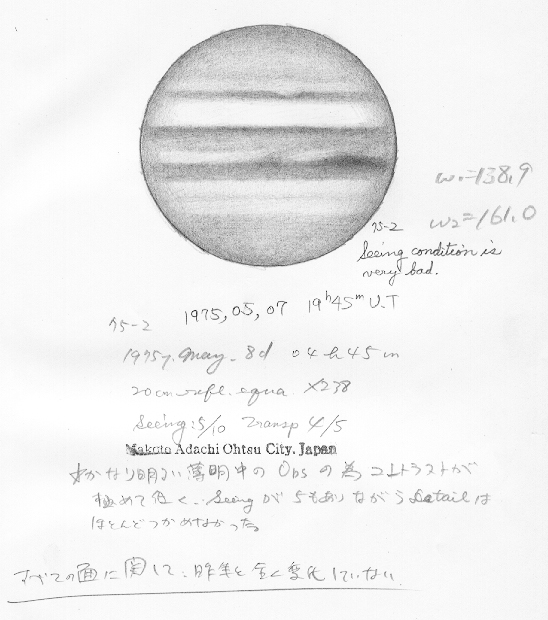 ω₁=138.9
ω₂=161.0
75-2
Seeing condition is
very bad.
1975, 05, 07 19ʰ45ᵐ U.T
75-2
1975y. May. 8d 04h 45m
20cm refl. equa. ×238
Seeing: 5/10 Transp 4/5
Makoto Adachi Ohtsu City. Japan
かなり明るい薄明中の Obs の為コントラストが
極めて低く、Seeing が 5もありながら Detail は
ほとんどつかめなかった
すべての面に関して、昨年と全く変化していない.